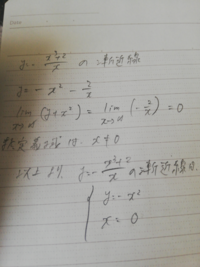 y=-\frac{x^3+2}{x} の漸近線
y=-x^2-\frac{2}{x}
\lim (y+x^2)=\lim (-\frac{2}{x})=0
x≠0
以上より、y=-\frac{x^3+2}{x}の漸近線は
y=-x^2
x=0